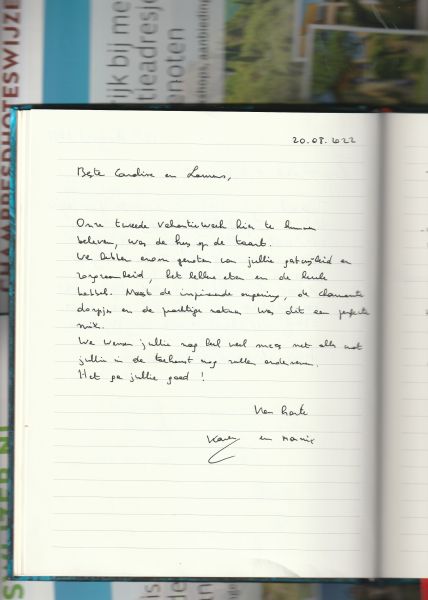 HAMBRESDHOTESWIJZE
ijk bij me
tieadresje
noten
shops, aanbieding
20.08.2022
Beste Caroline en Laurens,
Onze tweede vakantieweek hier te kunnen
beleven, was de kers op de taart.
We hebben enorm genoten van jullie gastvrijheid en
zorgzaamheid, het lekkere eten en de leuke
babbel. Naast de inspirerende omgeving, de charmante
dorpjes en de prachtige natuur was dit een perfecte
mix.
We wensen jullie nog heel veel succes met alles wat
jullie in de toekomst nog zullen ondernemen.
Het ga jullie goed !
Van harte
Karen en